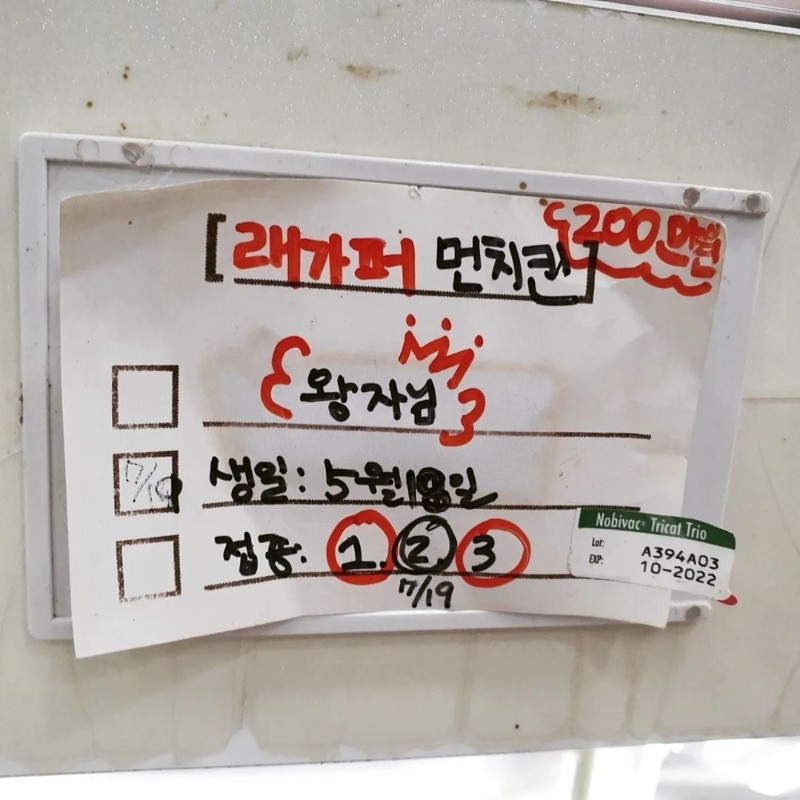 [래가퍼 먼치킨]
200만원
왕자님
7/10
생일: 5월18일
접종: 1. 2. 3
7/19
Nobivac® Tricat Trio
Lot: A394A03
EXP: 10-2022